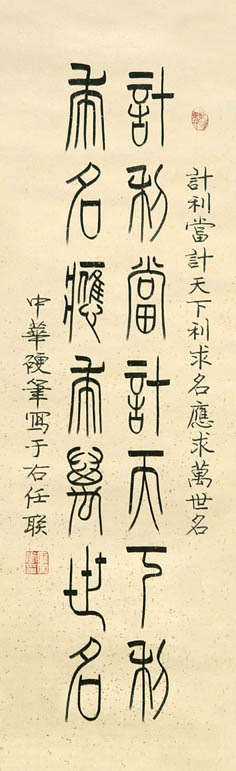 計利當計天下利求名應求萬世名
計利當計天下利
求名應求萬世名
中華硬筆寫于右任联